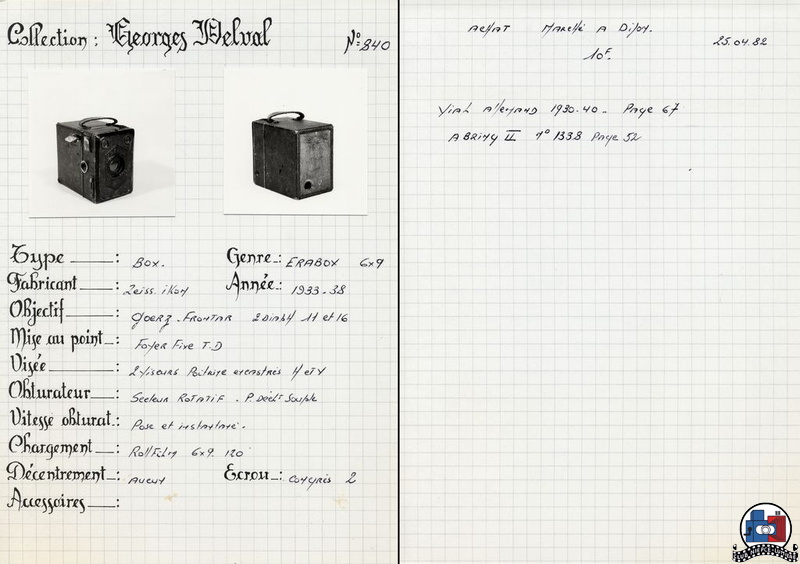 Collection : Georges Delval
N° 840
Type : Box.
Genre : ERABOX 6x9
Fabricant : Zeiss. iKon
Année : 1933-38
Objectif : Goerz - Frontar 2 Diaph 11 et 16
Mise au point : Foyer Fixe T.D
Visée : 2 Viseurs Poitrine encastrés H et V
Obturateur : Secteur Rotatif . P. Déclt Souple
Vitesse obturat. : Pose et instantané.
Chargement : RollFilm 6x9. 120
Décentrement : Aucun
Ecrou : Congrès 2
Accessoires :
Achat Marché A Dijon.
25.04.82
10F.
Vial Allemand 1930-40 - Page 67
ABRING II n° 1338 Page 52